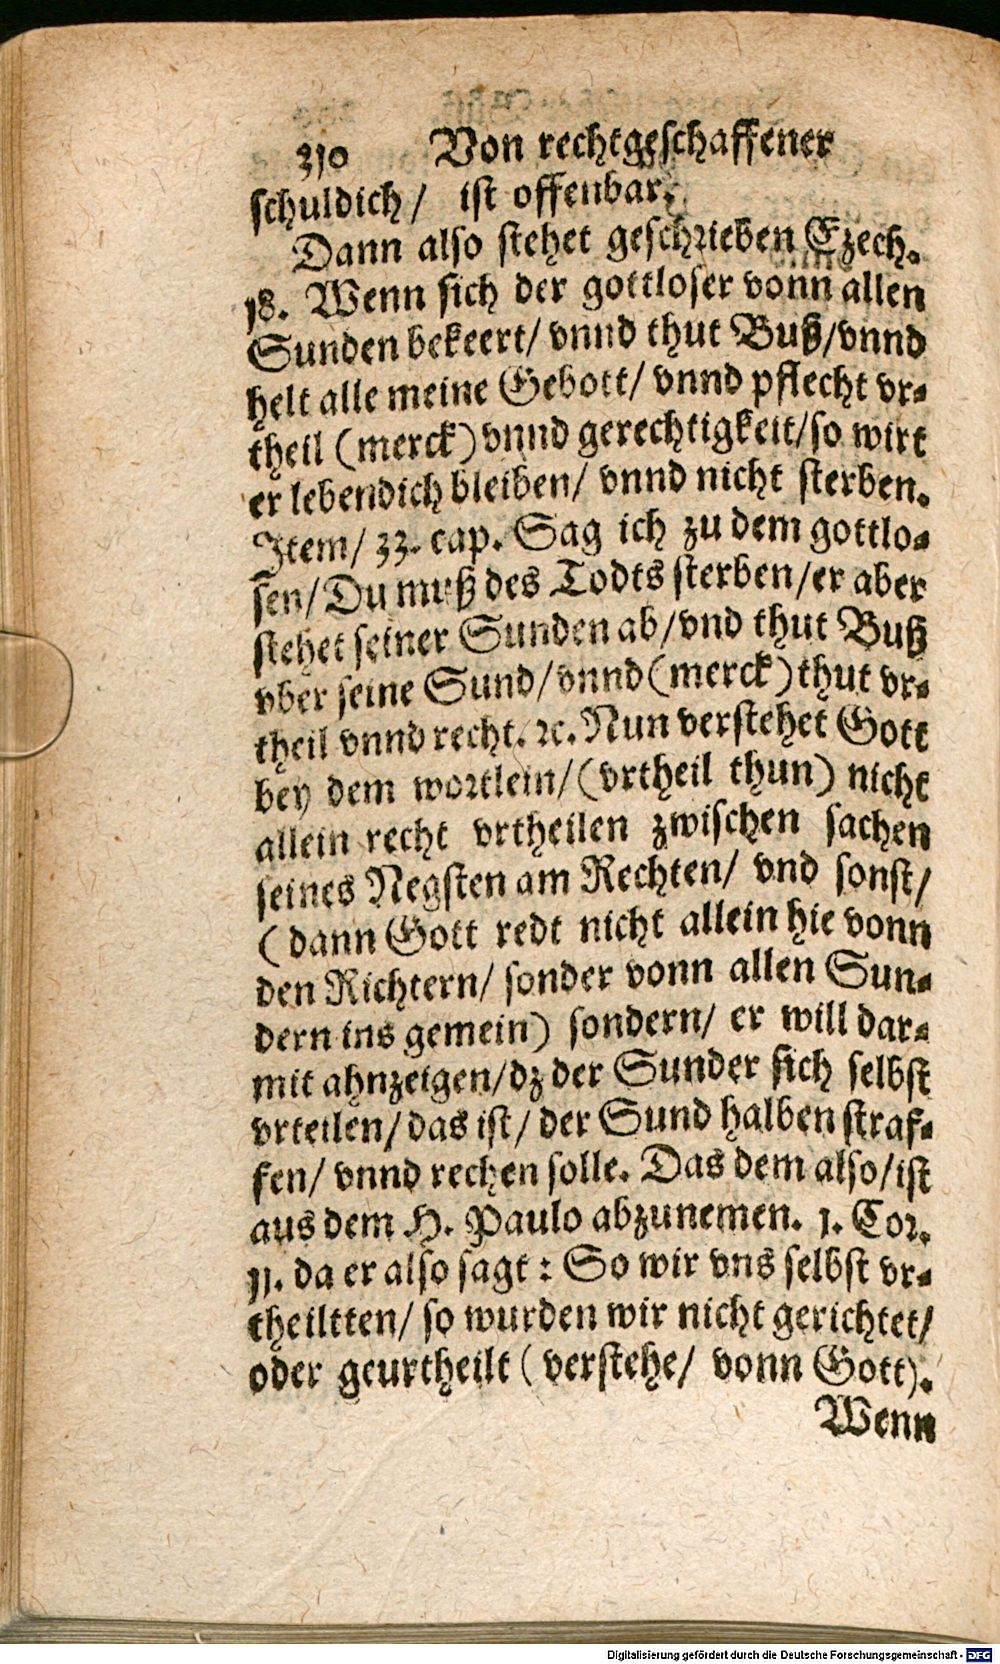 310 Von rechtgeschaffener
schuldich/ ist offenbar.
Dann also stehet geschrieben Ezech.
18. Wenn sich der gottloser vonn allen
Sunden bekeert/ vnnd thut Buß/vnnd
helt alle meine Gebott/ vnnd pflecht vr-
theil (merck) vnnd gerechtigkeit/so wirt
er lebendich bleiben/ vnnd nicht sterben.
Item/ 33. cap. Sag ich zu dem gottlo-
sen/Du muß des Todts sterben/er aber
stehet seiner Sunden ab/vnd thut Buß
vber seine Sund/vnnd(merck)thut vr-
theil vnnd recht. ꝛc. Nun verstehet Gott
bey dem wortlein/(vrtheil thun) nicht
allein recht vrtheilen zwischen sachen
seines Negsten am Rechten/ vnd sonst/
(dann Gott redt nicht allein hie vonn
den Richtern/ sonder vonn allen Sun-
dern ins gemein) sondern/ er will dar-
mit ahnzeigen/dz der Sunder sich selbst
vrteilen/das ist/ der Sund halben straf-
fen/ vnnd rechen solle. Das dem also/ist
aus dem H. Paulo abzunemen. 1. Cor.
11. da er also sagt: So wir vns selbst vr-
theiltten/ so wurden wir nicht gerichtet/
oder geurtheilt (verstehe/ vonn Gott).
Wenn
Digitalisierung gefördert durch die Deutsche Forschungsgemeinschaft - DFG